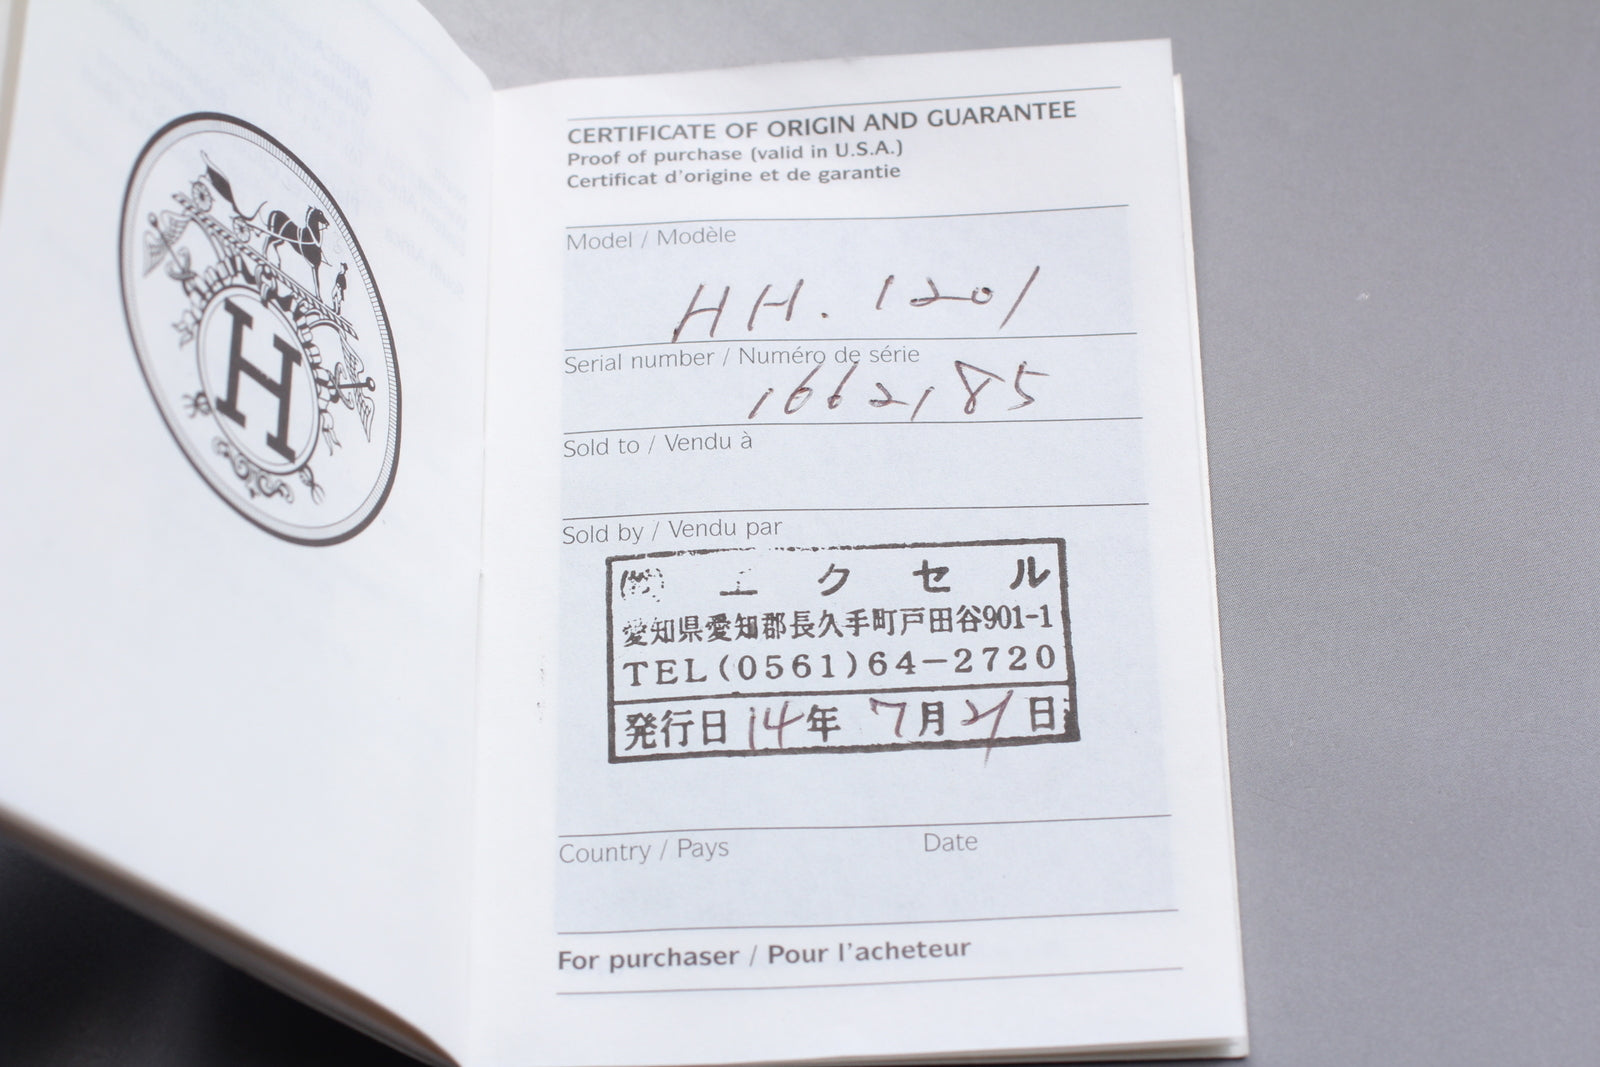 H
CERTIFICATE OF ORIGIN AND GUARANTEE
Proof of purchase (valid in U.S.A.)
Certificat d'origine et de garantie
Model / Modèle
HH. 1201
Serial number / Numéro de série
1662185
Sold to / Vendu à
Sold by / Vendu par
エクセル
愛知県愛知郡長久手町戸田谷901-1
TEL(0561)64-2720
発行日 14年 7月 21日
Country / Pays Date
For purchaser / Pour l'acheteur